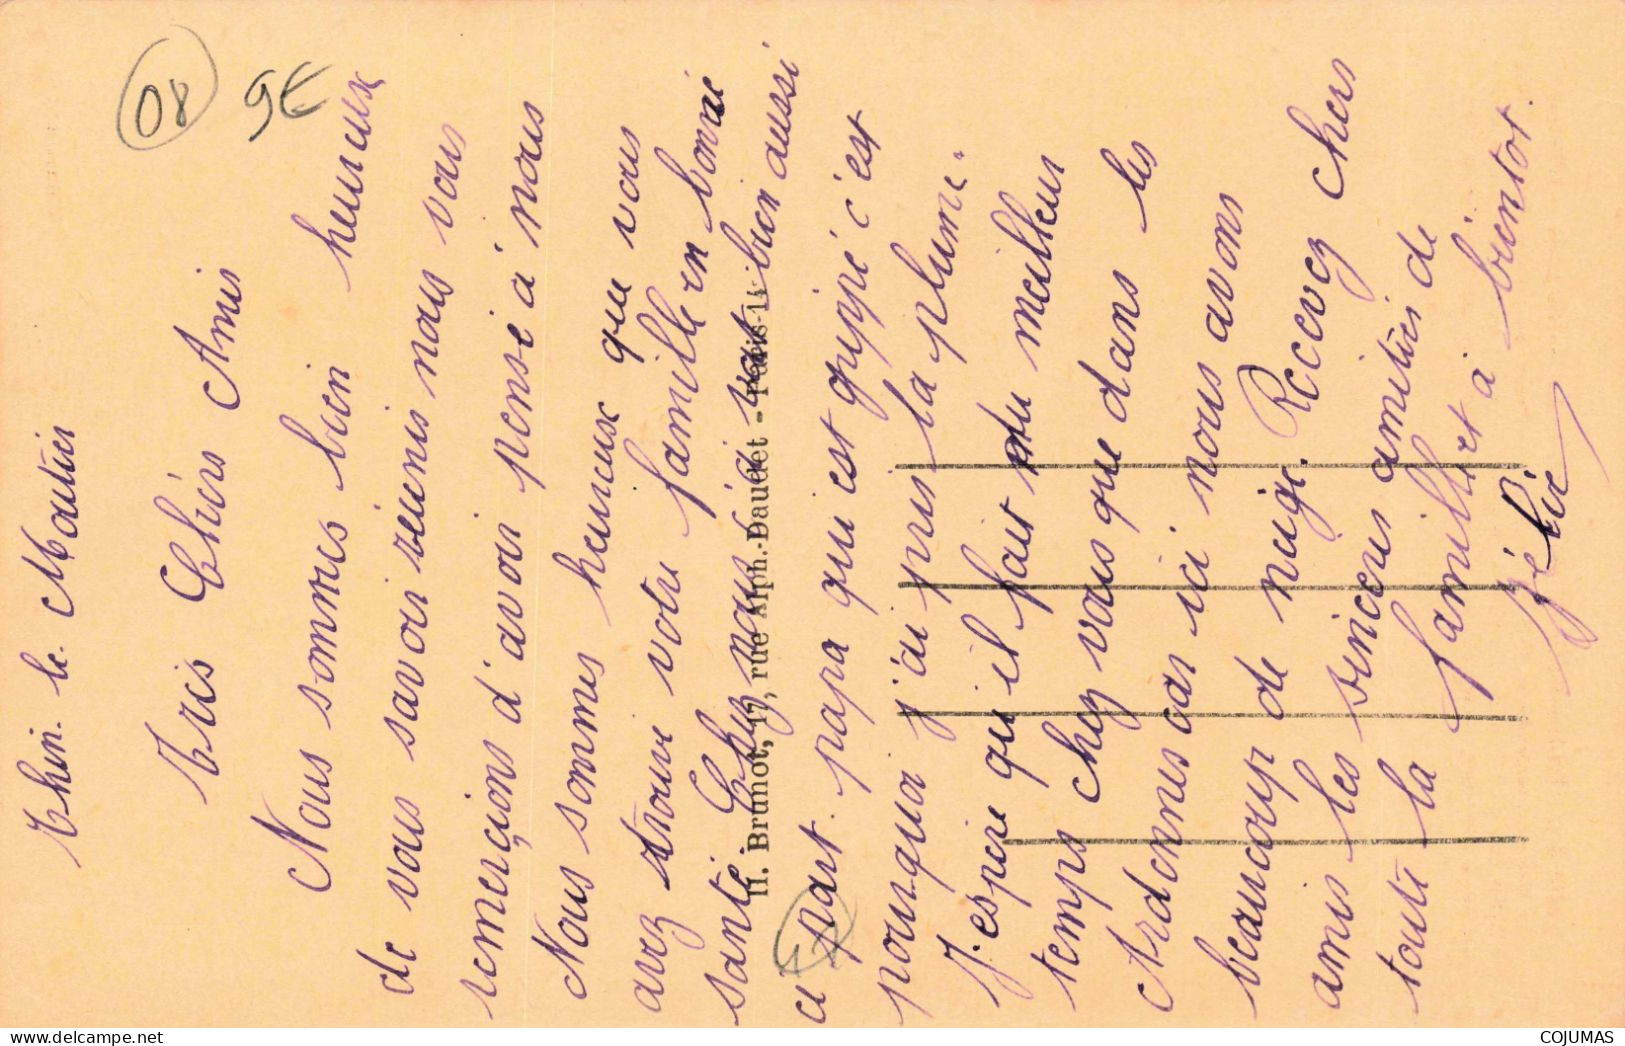 Thin. le. Moutier
Très Chèrs Amis
Nous sommes bien heureux
de vous savoir réunis nous vous
remerçions d'avoir pensé à nous
Nous sommes heureux que vous
avez trouve votre famille en bonne
santé. Chez nous vat bien aussi
a part. papa qui est grippé c'est
pourquoi j'ai pris la plume.
J'espère qu'il fait du meilleur
temps chez vous que dans les
Ardennes car ici nous avons
beaucoup de neige. Recevez chers
amis les sincères amitiés de
toute la famille et à bientot.
Zélie
H. Brunot, 17, rue Alph.-Daudet - Paris-14
08
9€
delcampe.net
COJUMAS